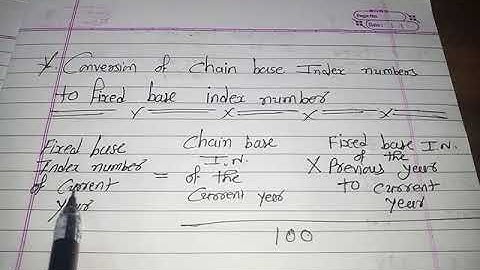 Page No.
Date
Conversion of Chain base Index numbers
to fixed base index number
Fixed base
Index number
of current
year
=
Chain base
I.N.
of the
Current year
X
Fixed base I.N.
of the
Previous year
to current
year
100